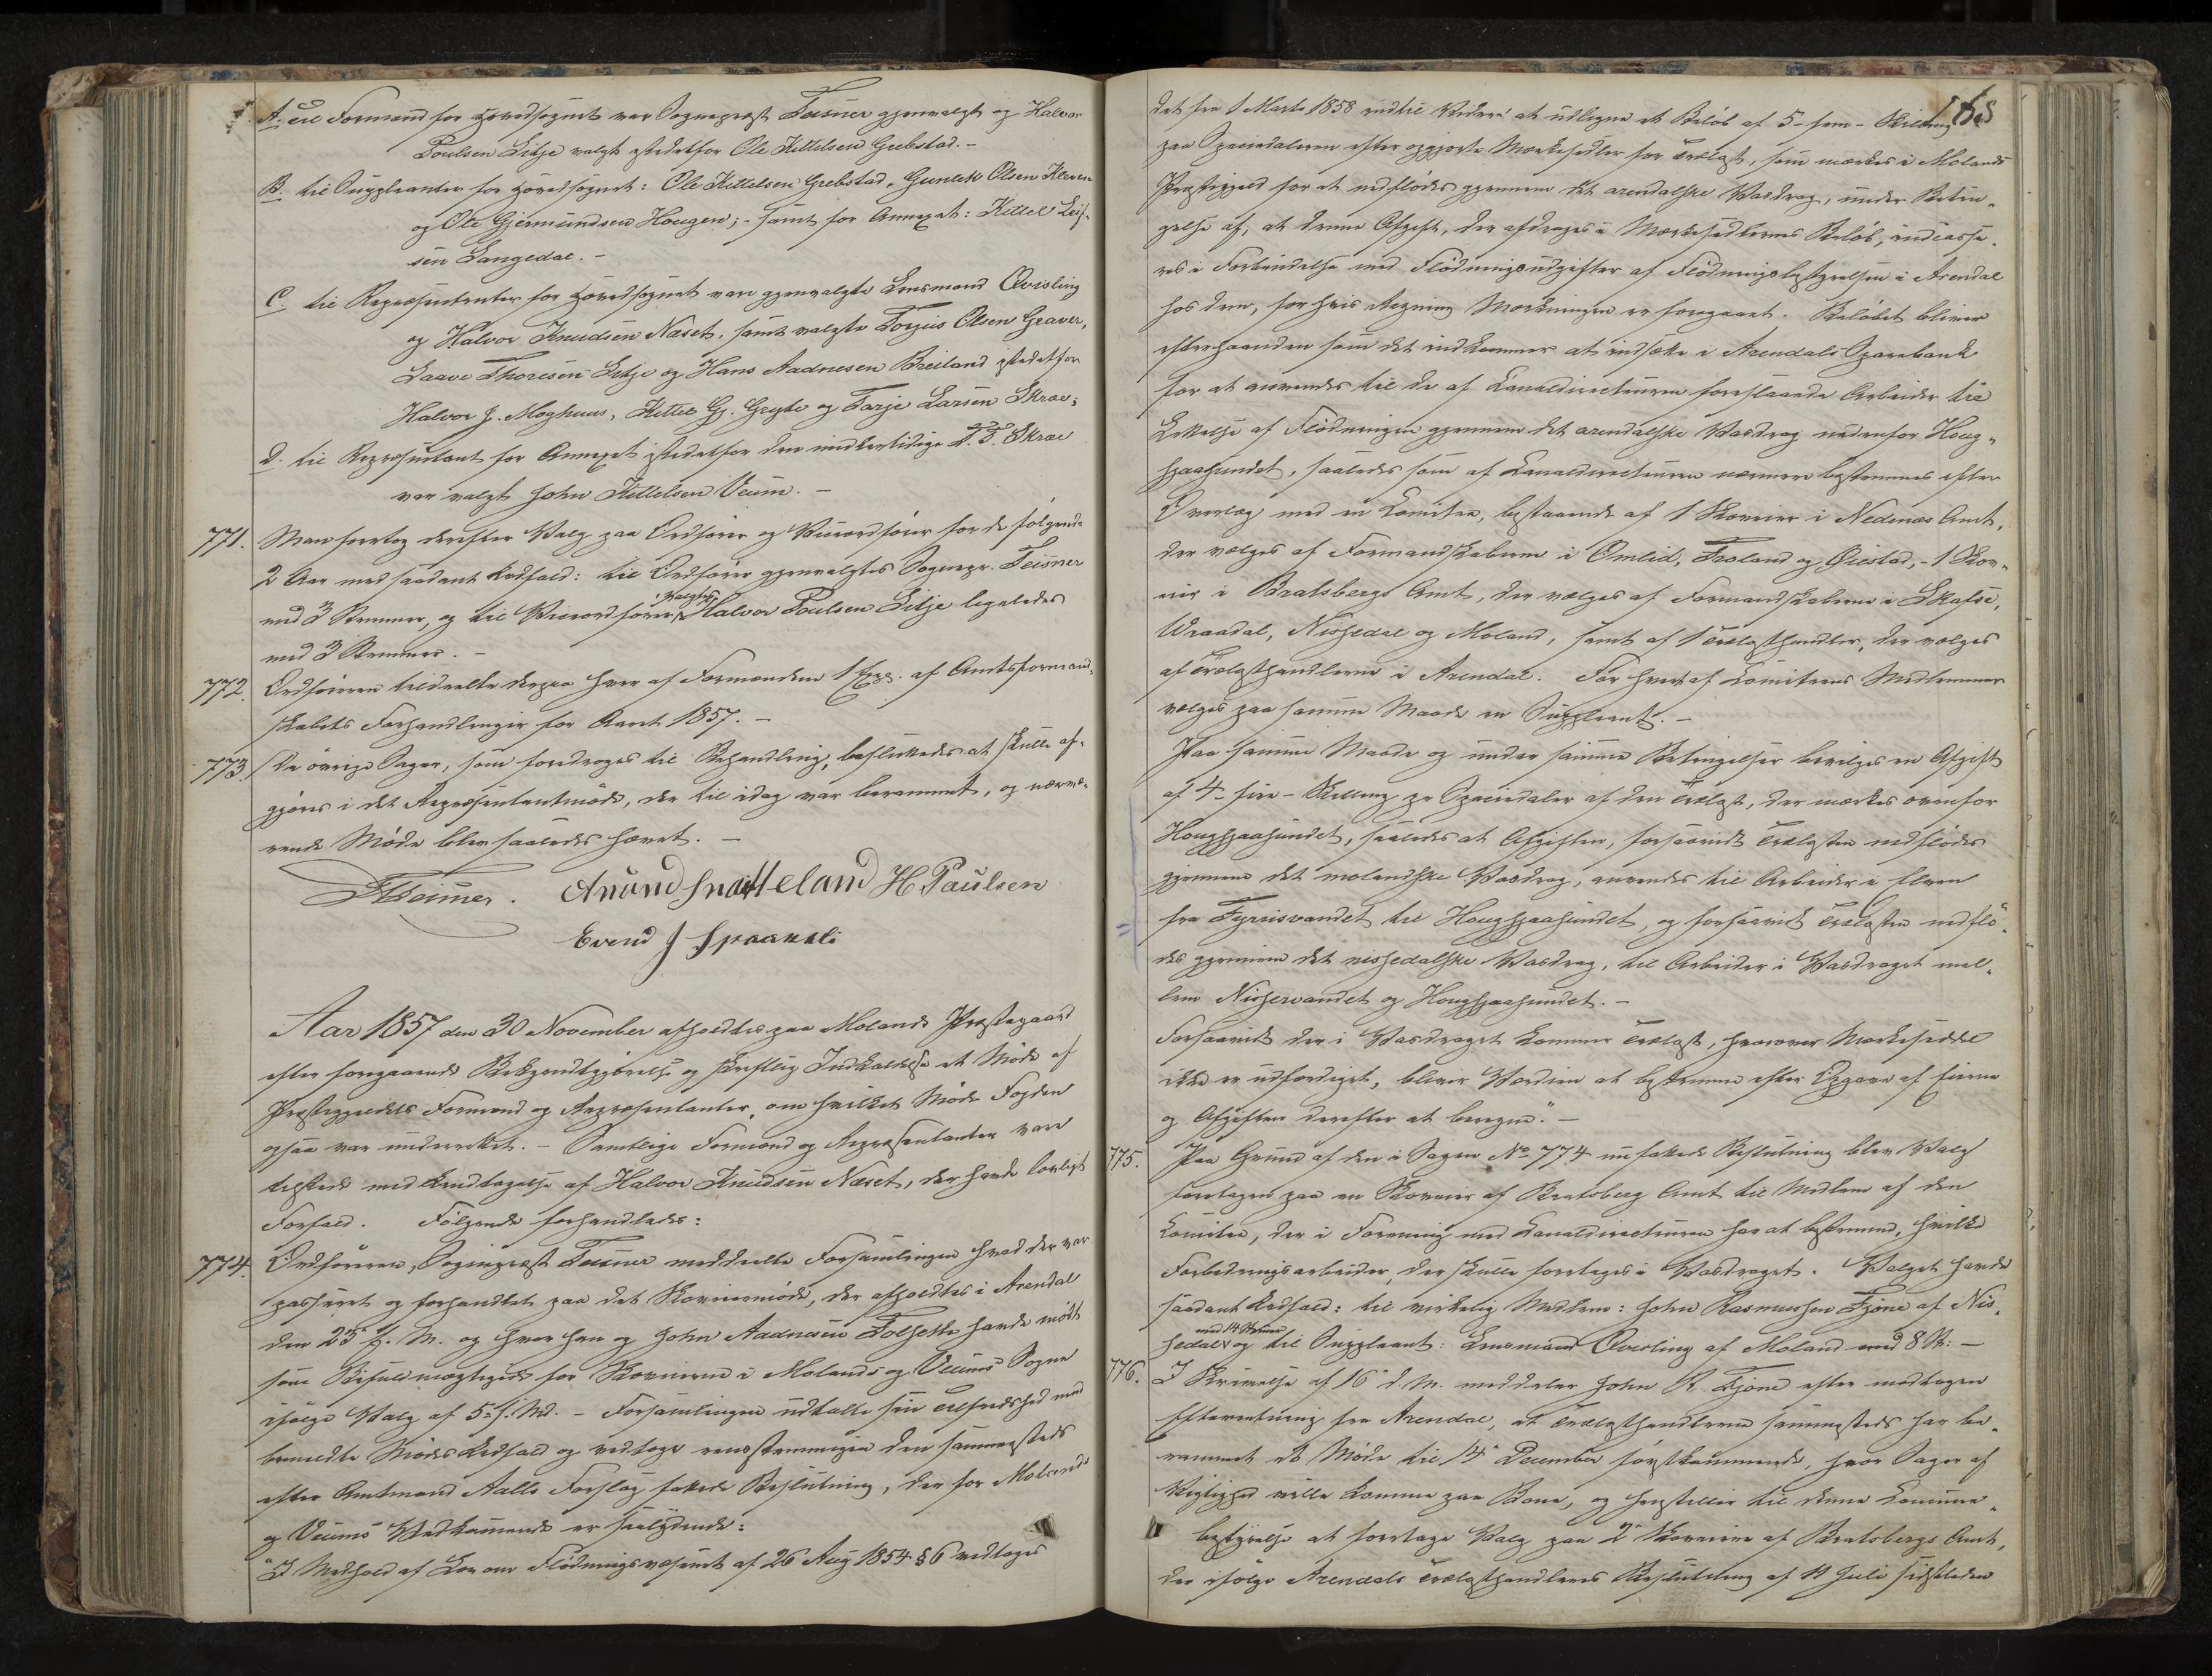 A. til Formand for Hovedsognet var Sognepræst Teisner gjenvalgt og Halvor
Poulsen Litje valgt istedetfor Ole Kittelsen Grebstad. -
B. til Suppleanter for Hovedsognet: Ole Kittelsen Grebstad, Gunlek Olsen Kleven
og Ole Gjermundsen Hougen; - samt for Annexet: Kittel Leif-
sen Langedal. -
C. til Repræsentanter for Hovedsognet vare gjenvalgte Lensmand Qvisling
og Halvor Knudsen Næset, samt valgte Torjus Olsen Graver,
Laave Thoresen Litje og Hans Aadnesen Breiland istedetfor
Halvor J. Moghuus, Kittel Gj. Gryte og Tarje Larsen Skree;
D. til Repræsentant for Annexet istedetfor den midlertidige T. T. Skree
var valgt John Kittelsen Veum. -
771. Man foretog derefter Valg paa Ordfører og Viceordfører for de følgende
2 Aar med saadant Udfald: til Ordfører gjenvalgtes Sognepr. Teisner
med 3 Stemmer, og til Viceordfører valgtes Halvor Poulsen Litje ligeledes
med 3 Stemmer. -
772. Ordføreren tildeelte derpaa hver af Formændene 1 Exp. af Amtsformand-
skabets Forhandlinger for Aaret 1857. -
773. De øvrige Sager, som foredroges til Behandling, besluttedes at skulle af-
gjøres i det Repræsentantmøde, der til idag var berammet, og nærvæ-
rende Møde blev saaledes hævet. -
FTeisner. Anund Snatteland H Paulsen
Evend J Spaaneli
Aar 1857 den 30 November afholdtes paa Molands Præstegaard
efter foregaaende Bekjendtgjørelse og skriftlig Indkaldelse et Møde af
Præstegjeldets Formænd og Repræsentanter, om hvilket Møde Fogden
ogsaa var underrettet. - Samtlige Formænd og Repræsentanter vare
tilstede med Undtagelse af Halvor Knudsen Næset, der havde lovligt
Forfald. Følgende forhandledes:
774. Ordføreren, Sognepræst Teisner meddeelte Forsamlingen hvad der var
passeret og forhandlet paa det Skoveiermøde, der afholdtes i Arendal
den 25 f. M. og hvor han og John Aadnesen Folsette havde mødt
som Befuldmægtigede for Skoveierne i Molands og Veums Sogne
ifølge Valg af 5 f. Md. - Forsamlingen udtalte sin Tilfredshed med
bemeldte Mødes Udfald og vedtoge eenstemmigen den sammesteds
efter Amtmand Aalls Forslag fattede Beslutning, der for Molands
og Veums Vedkommende er saalydende:
"I Medhold af Lov om Flødningsvæsenet af 26 Aug 1854 § 6 vedtages
168
det fra 1 Marts 1858 indtil Videre at udligne et Beløb af 5 - fem - Skilling
paa Speciedaleren efter opgjorte Mærkesedler for Trælast, som mærkes i Molands
Præstegjeld for at nedflødes gjennem det arendalske Vasdrag, under Betin-
gelse af, at denne Afgift, der afdrages i Mærkesedlernes Beløb, indcasse-
res i Forbindelse med Flødningsudgifter af Flødningsbestyrelsen i Arendal
hos dem, for hvis Regning Mærkningen er foregaaet. Beløbet bliver
efterhaanden som det indkommer at indsætte i Arendals Sparebank
for at anvendes til de af Canaldirecteuren foreslaaede Arbeider til
Lettelse af Flødningen gjennem det arendalske Vasdrag nedenfor Houg-
sjaasundet, saaledes som af Canaldirecteuren nærmere bestemmes efter
Overlæg med en Comitee, bestaaende af 1 Skoveier i Nedenæs Amt,
der vælges af Formandskaberne i Omlid, Froland og Øiestad, - 1 Skov-
eier i Bratsbergs Amt, der vælges af Formandskaberne i Skafse,
Wraadal, Nissedal og Moland, samt af 1 Trælasthandler, der vælges
af Trælasthandlerne i Arendal. For hvert af Comiteens Medlemmer
vælges paa samme Maade en Suppleant. -
Paa samme Maade og under samme Betingelser bevilges en Afgift
af 4 - fire - Skilling pr Speciedaler af den Trælast, der mærkes ovenfor
Hougsjaasundet, saaledes at Afgiften, forsaavidt Trælasten nedflødes
gjennem det molandske Vasdrag, anvendes til Arbeider i Elven
fra Fyriisvandet til Hougsjaasundet, og forsaavidt Trælasten nedflø-
des gjennem det nissedalske Vasdrag, til Arbeider i Vasdraget mel-
lem Nisservandet og Hougsjaasundet. -
Forsaavidt der i Vasdraget kommer Trælast, hvorover Mærkeseddel
ikke er udfærdiget, bliver Værdien at bestemme efter Opgave af Eierne
og Afgiften derefter at beregne." -
775. Paa Grund af den i Sagen No 774 nu fattede Beslutning blev Valg
foretagen paa en Skoveier af Bratsberg Amt til Medlem af den
Comitee, der i Forening med Canaldirecteuren har at bestemme, hvilke
Forbedringsarbeider, der skulle foretages i Vasdraget. Valget havde
saadant Udfald: til virkelig Medlem: John Rasmussen Fjone af Nis-
sedal med 14 Stemmer og til Suppleant: Lensmand Qvisling af Moland med 8 St: -
776. I Skrivelse af 16 d. M. meddeler John R. Fjone efter modtagen
Efterretning fra Arendal, at Trælasthandlerne sammesteds har be-
rammet et Møde til 14 December førstkommende, hvor Sager af
Vigtighed ville komme paa Bane, og henstiller til denne Commune-
bestyrelse at foretage Valg paa 2 Skoveiere af Bratsbergs Amt,
der ifølge Arendals Trælasthandleres Beslutning af 11 Juli sidstleden